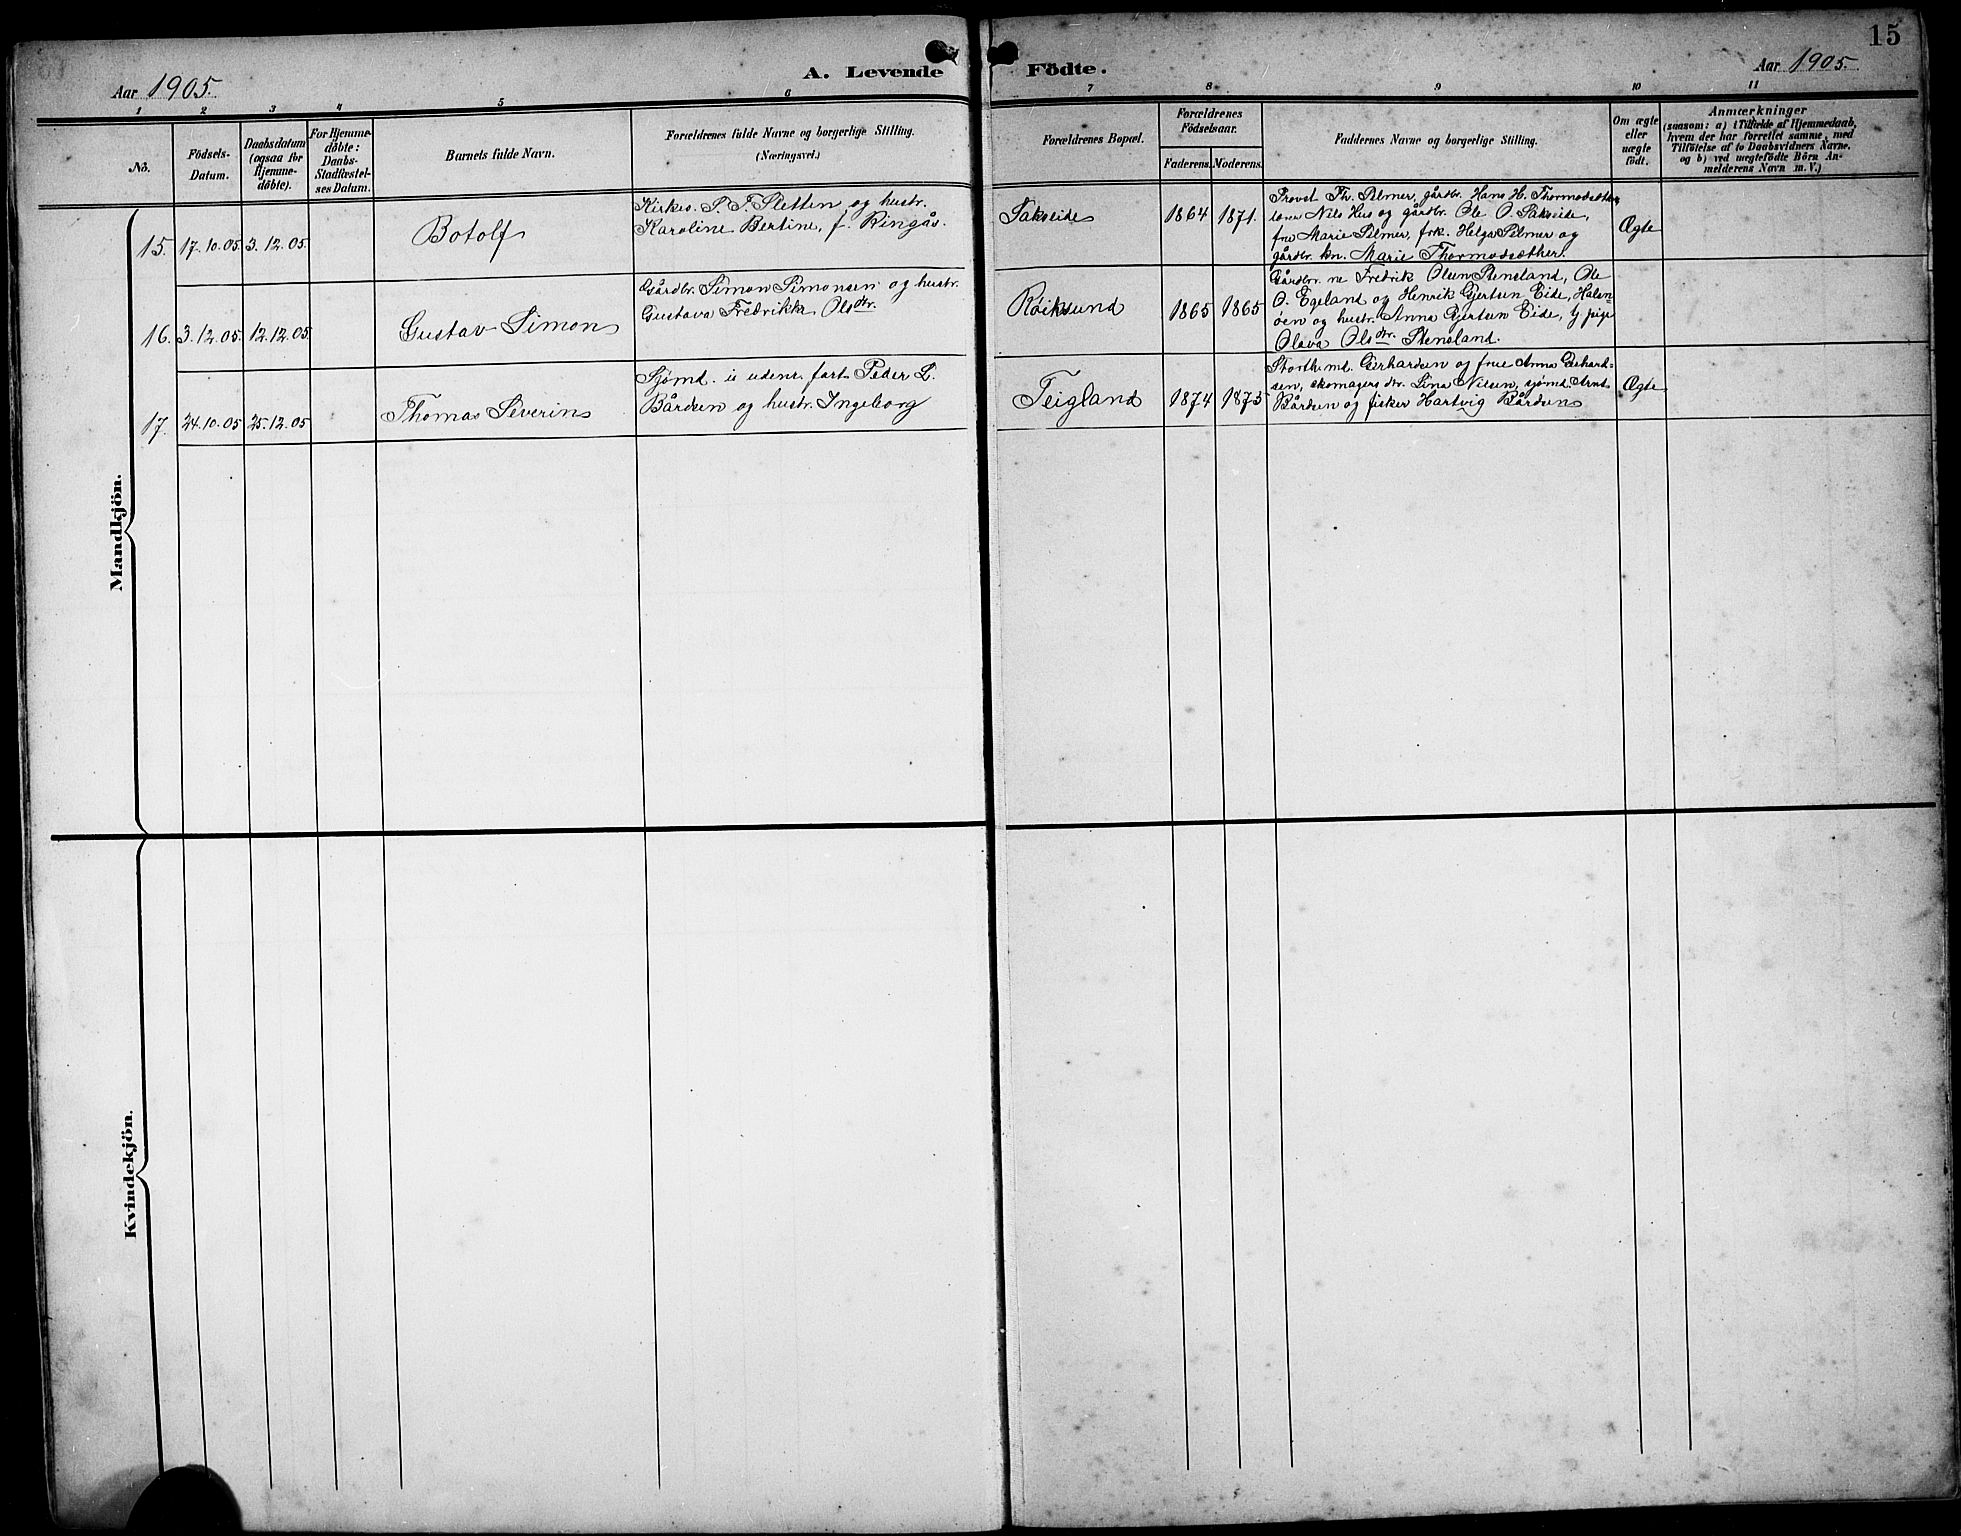 15
Aar 1905.
A. Levende
Födte.
Aar 1905.
1 2 3 4 5 6 7 8 9 10 11
No.
Födsels-
Datum.
Daabsdatum
(ogsaa for
Hjemme-
döbte).
For Hjemme-
döbte:
Daabs-
Stadfæstel-
ses Datum.
Barnets fulde Navn.
Forældrenes fulde Navne og borgerlige Stilling.
(Næringsvei.)
Forældrenes Bopæl.
Forældrenes
Födselsaar.
Faderens. Moderens.
Faddernes Navne og borgerlige Stilling.
Om ægte
eller
uægte
födt.
Anmærkninger
(saasom: a) i Tilfælde af Hjemmedaab,
hvem der har forrettet samme, med
Tilföielse af to Daabsvidners Navne,
og b) ved uægtefödte Börn An-
melderens Navn m. V.)
Mandkjön.
15. 17.10.05 3.12.05 Botolf
Kirkes. P. T. Sletten og hustr.
Karoline Bertine, f. Ringås.
Fakseide 1864 1871.
Provst Th. Pelmer, gårdbr. Hans H. Thormodsæther,
Nils Hus og gårdbr. Ole O. Fakseide,
frue Marie Pelmer, frk. Helga Pelmer og
gårdbr. kn. Marie Thormodsæther.
Ægte
16. 3.12.05. 12.12.05 Gustav Simon
Gårdbr. Simon Simonsen og hustr.
Gustava Fredrikke Olsdtr.
Røiksund 1865 1865
Gårdbr. ne Fredrik Olsen Stensland, Ole
O. Egeland og Henrik Gjertsen Eide, Halsn
øen og hustr. Anna Gjertsen Eide, pige
Olava Olsdtr. Stensland.
17. 24.10.05 25.12.05 Thomas Severin
Sjømd. i udenr. fart Peder L.
Bårdsen og hustr. Ingeborg
Teigland 1874 1875
Storth.md. Gerhardsen og frue Anna Gerhard-
sen, skomagers dtr. Lina Nilsen, sjømd. Arnt
Bårdsen og fisker Hartvig Bårdsen
Ægte
Kvindekjön.